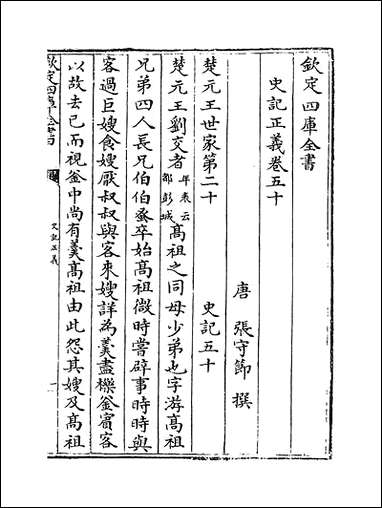 欽定四庫全書
史記正義卷五十
唐 張守節 撰
楚元王世家第二十 史記五十
楚元王劉交者年表云都彭城高祖之同母少弟也字游高祖
兄弟四人長兄伯伯蚤卒始高祖微時嘗辟事時時與
客過巨嫂食嫂厭叔叔與客來嫂詳為羮盡櫟釜賔客
以故去已而視釜中尚有羮高祖由此怨其嫂及高祖
欽定四庫全書
史記正義
一